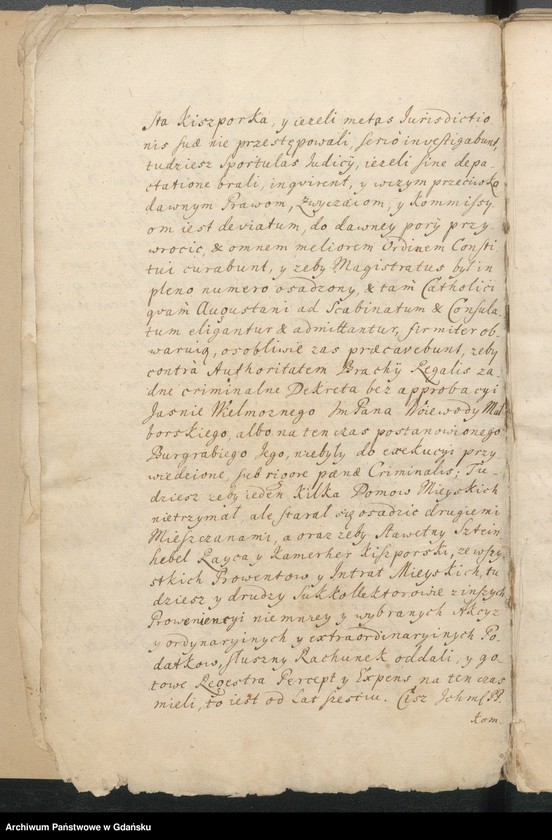 sta Kiszporka, y ieżeli metas Jurisdictio
nis suæ nie przestępowali, seriò investigabunt,
tudziesz Sportulas Judicÿ, ieżeli sine depa-
ctatione brali, inqvirent, y wczym przeciwko
dawnym Prawom, Zwyczaiom, y Kommissy
om iest deviatum, do dawney pory przy
wrocić, & omnem meliorem Ordinem Consti
tui curabunt, y żeby Magistratus był in
pleno numero osadzony, & tam Catholici
qvàm Augustani ad Scabinatum & Consula
tum eligantur & admittantur, firmiter ob-
waruią, osobliwie zas præcavebunt, żeby
contrà Authoritatem Brachÿ Regalis ża-
dne criminalne Dekreta bez approbacyi
Jasnie Wielmożnego Jm Pana Woiewody Mal
borskiego, albo na ten czas postanowionego
Burgrabiego Jego, niebyły do exekucyi przy
wiedzione, sub rigore pænæ Criminalis; Tu-
dziesz żeby ieden kilka Domow Mieyskich
nietrzymał, ale starał się osadzić drugiemi
Mieszczanami, a oraz żeby Sławetny Sztein
hebel Rayca y Kamerher Kiszporski, ze wszy
stkich Prowentow y Intrat Mieyskich, tu
dziesz y drudzy Sukkollektorowie z inszych
Proweniencyi niemniey y wybranych Akcyz
y ordynaryinych y extraordinaryinych Po-
datkow, słuszny Rachunek oddali, y go-
towe Regestra Percept y Expens na ten czas
mieli, to iest od Lat szesciu. Cisz Jchmść PP.
kom
Archiwum Państwowe w Gdańsku